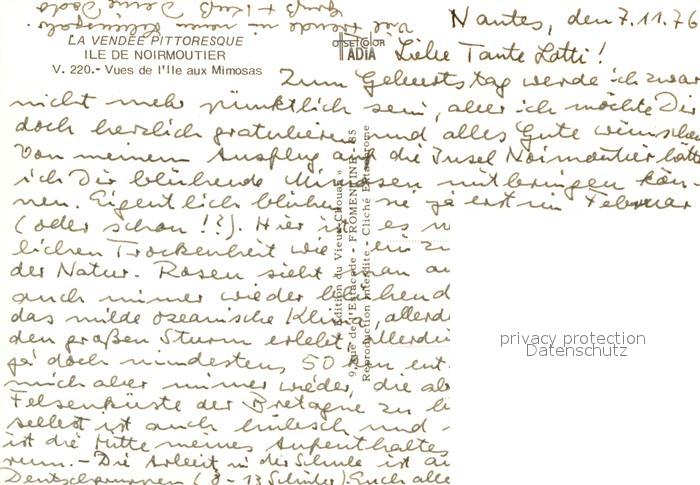 Nantes, den 7.11.76
LA VENDÉE PITTORESQUE
ILE DE NOIRMOUTIER
V. 220.- Vues de l'Ile aux Mimosas
OFFSETCOLOR
ADIA
Liebe Tante Lotti!
Zum Geburtstag werde ich zwar
nicht mehr pünktlich sein, aber ich möchte Dir
doch herzlich gratulieren und alles Gute wünschen
Von meinem Ausflug auf die Insel Noirmoutier hätte
ich Dir blühende Mimosen mitbringen kön-
nen. Eigentlich blühen sie ja erst im Februar
(oder schon!?). Hier ist es
lichen Trockenheit wie ein
der Natur. Rosen sieht man
auch immer wieder blühend
das milde ozeanische Klima, allerd
den großen Sturm erlebt. Allerdin
ja doch mindestens 50 km ent
mich aber immer wieder, die
Felsenküste der Bretagne zu
selbst ist auch hübsch und
ist die Mitte meines Aufenthaltes
rum. - Die Arbeit in der Schule ist
Deutschgruppen (8-13 Schüler). Euch alle
Viel Freude in
Gruß + Kuß Deine
« Edition du Vieux Chouan »
9, Rue de l'Estacade - FROMENTINE - 85
Reproduction Interdite - Cliché Estachrome
privacy protection
Datenschutz